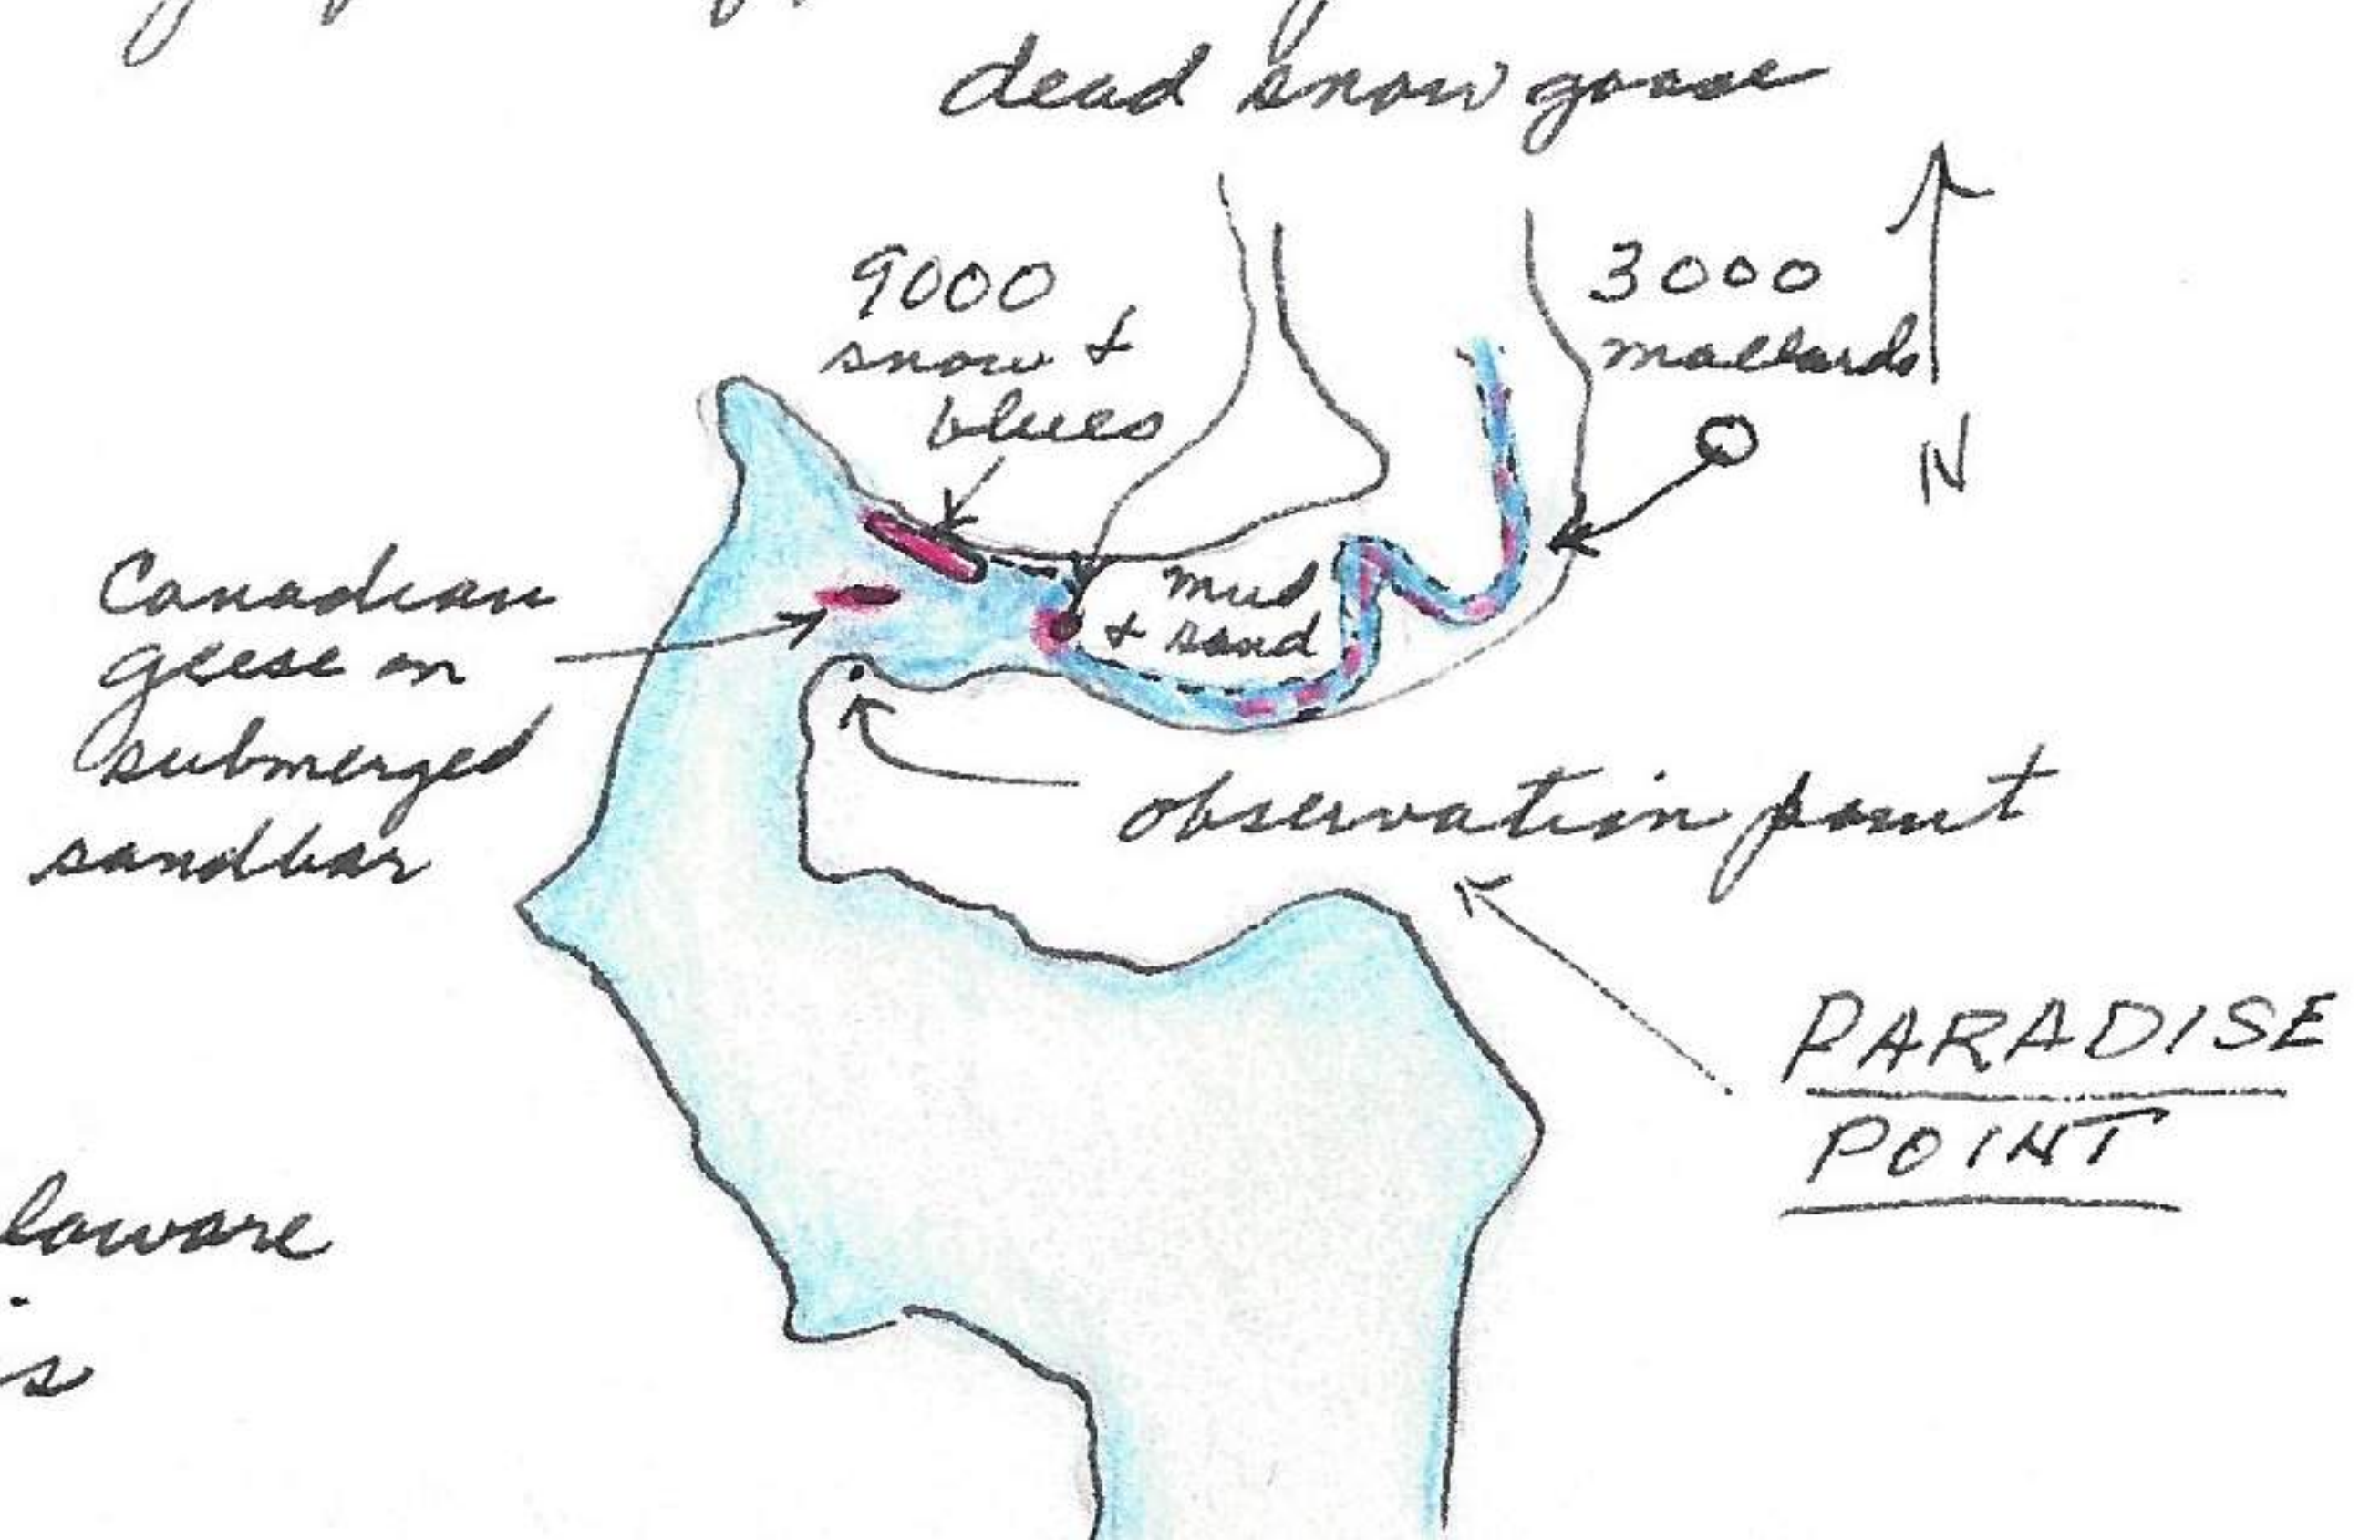 dead snow goose
9000
snow +
blues
3000
mallards
N
Canadian
geese on
submerged
sandbar
mud
+ sand
observation point
PARADISE
POINT
laware
s